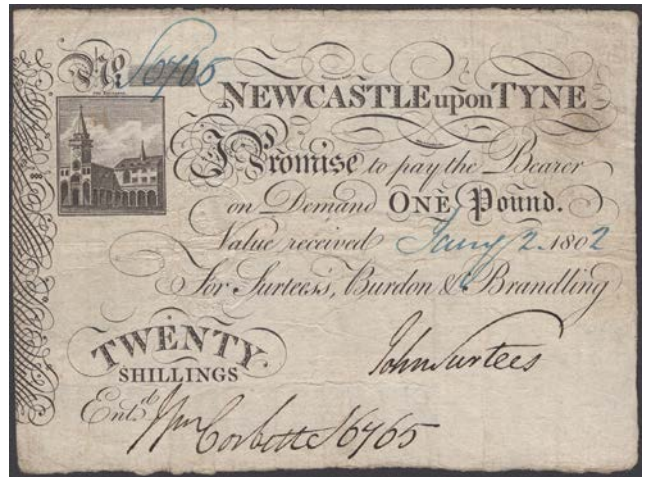 No. S6765
NEWCASTLE upon TYNE
I Promise to pay the Bearer
on Demand ONE Pound.
Value received Jany 2. 1802
For Surtees's, Burdon & Brandling
TWENTY
SHILLINGS
John Surtees
Entd. Wm Corbett S6765